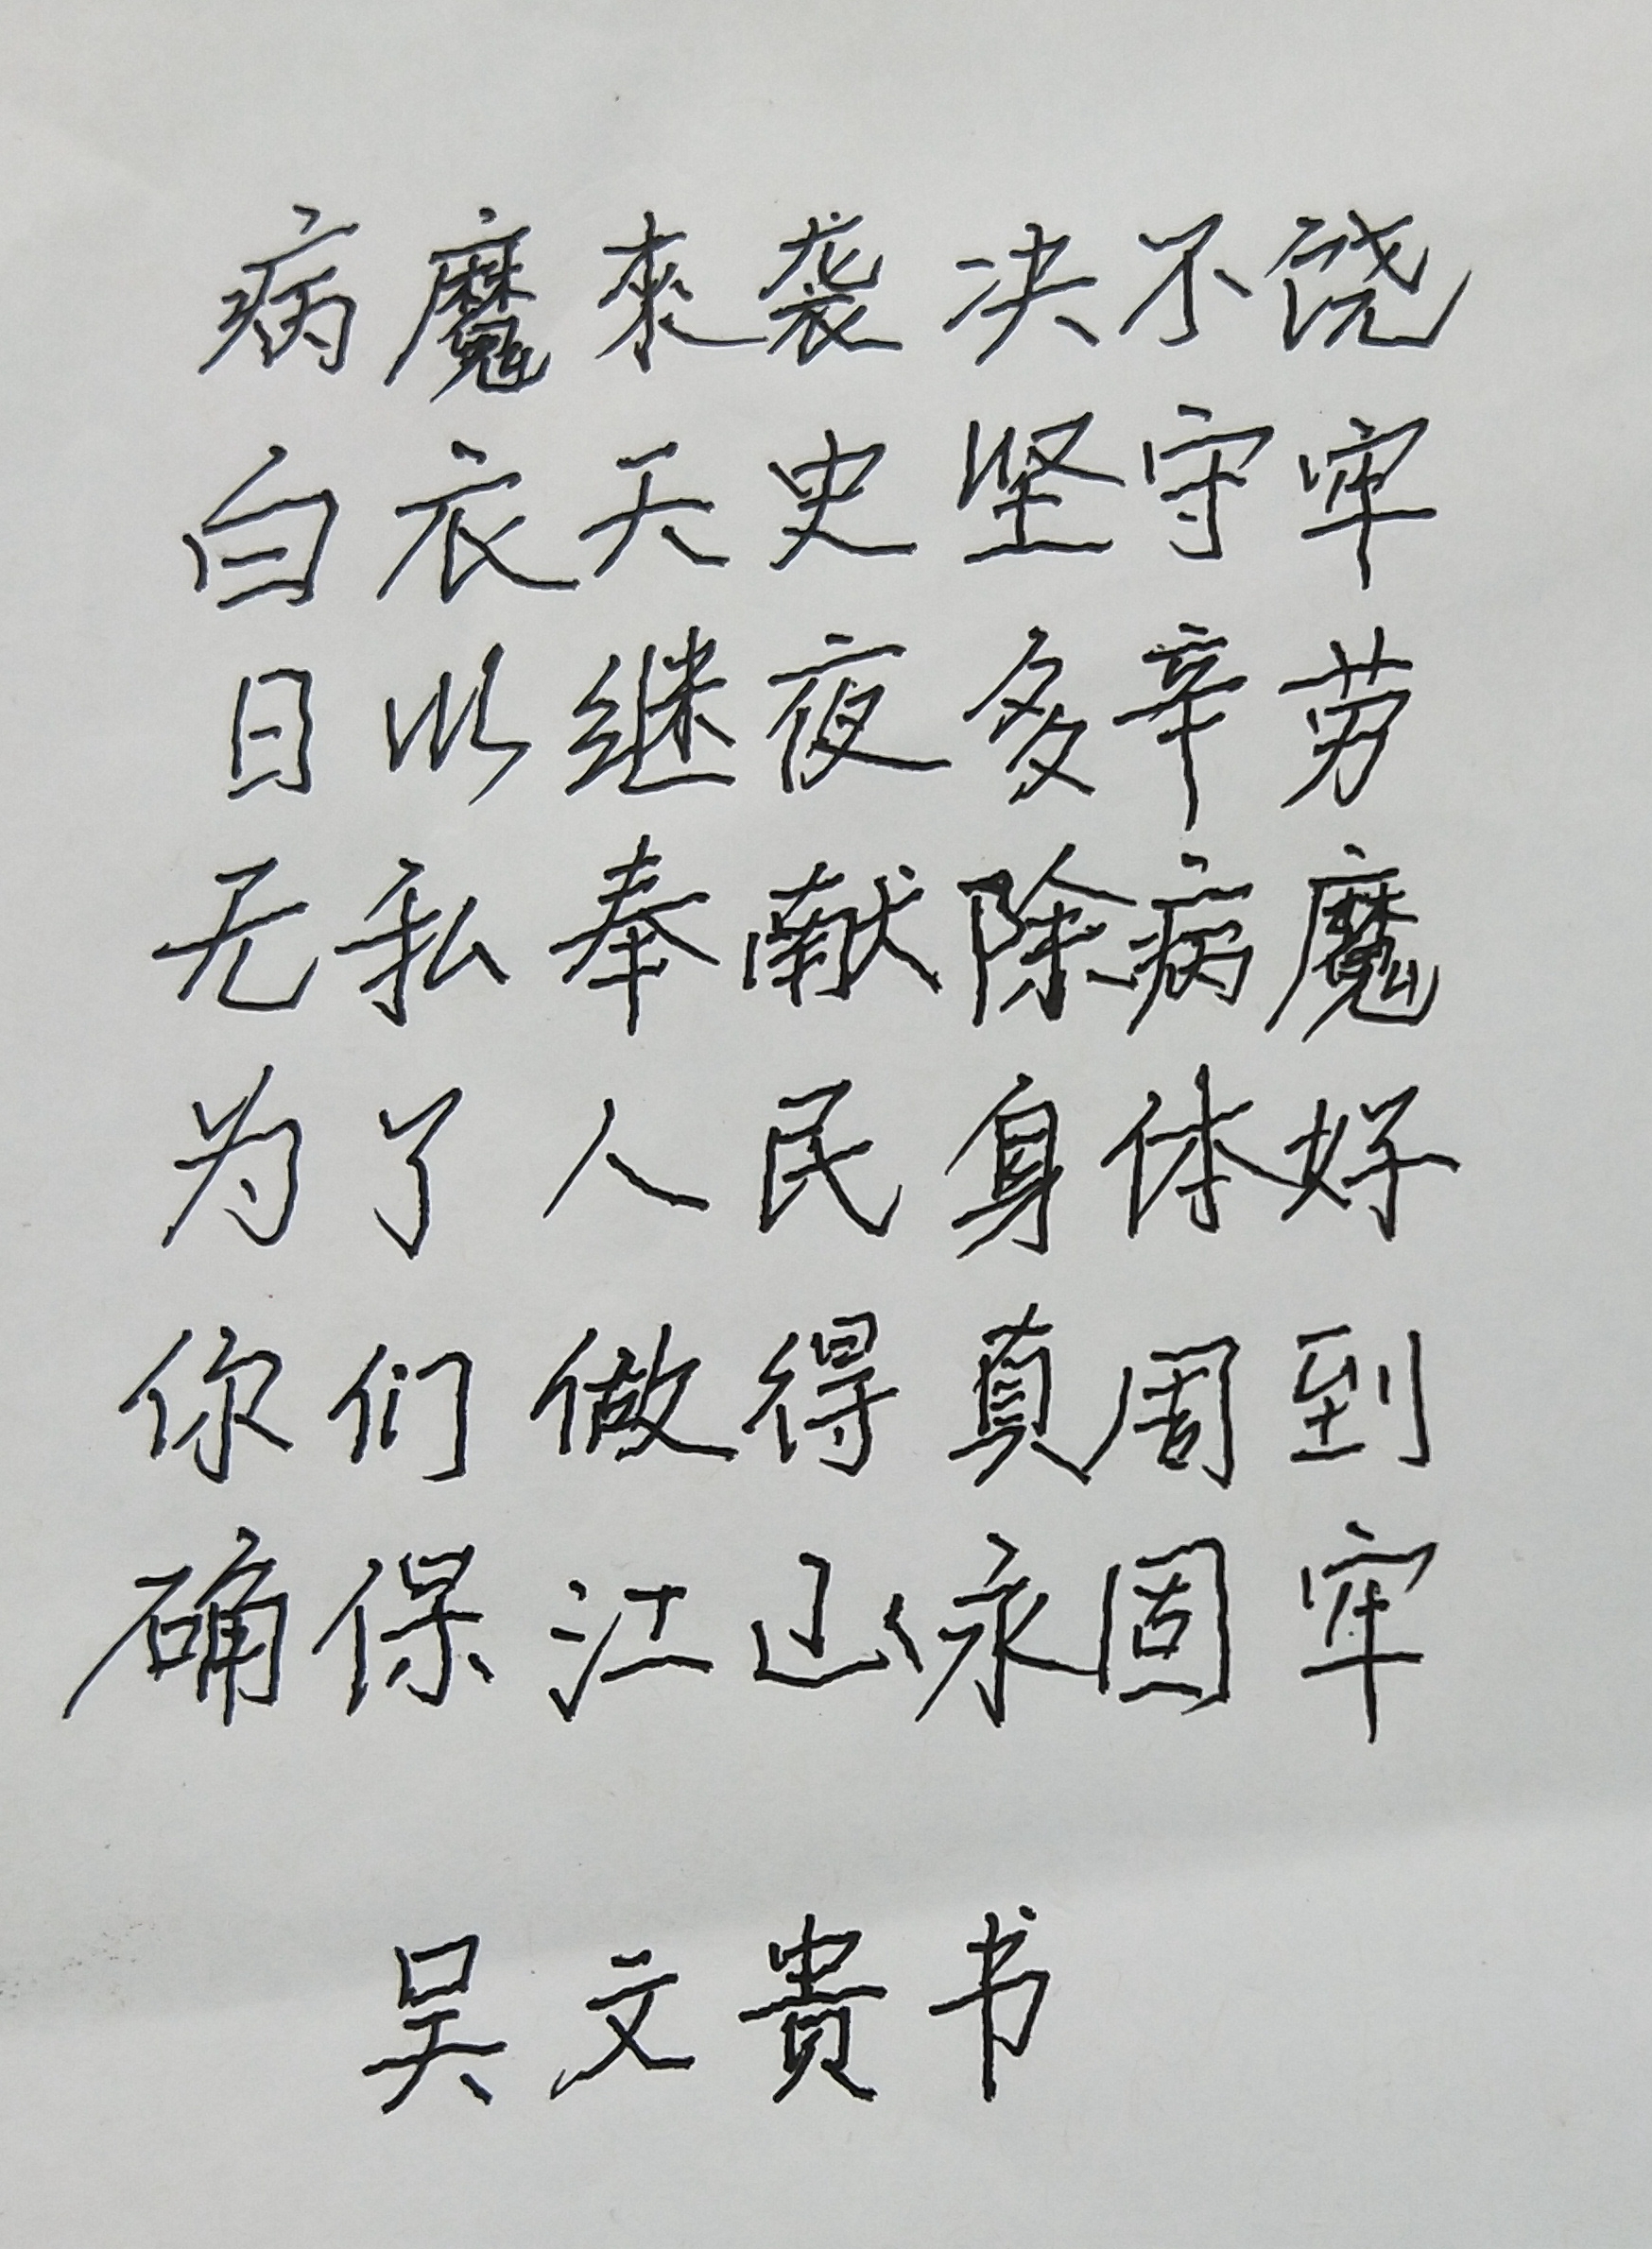 病魔来袭决不饶
白衣天史坚守牢
日以继夜多辛劳
无私奉献除病魔
为了人民身体好
你们做得真周到
确保江山永固牢
吴文贵书